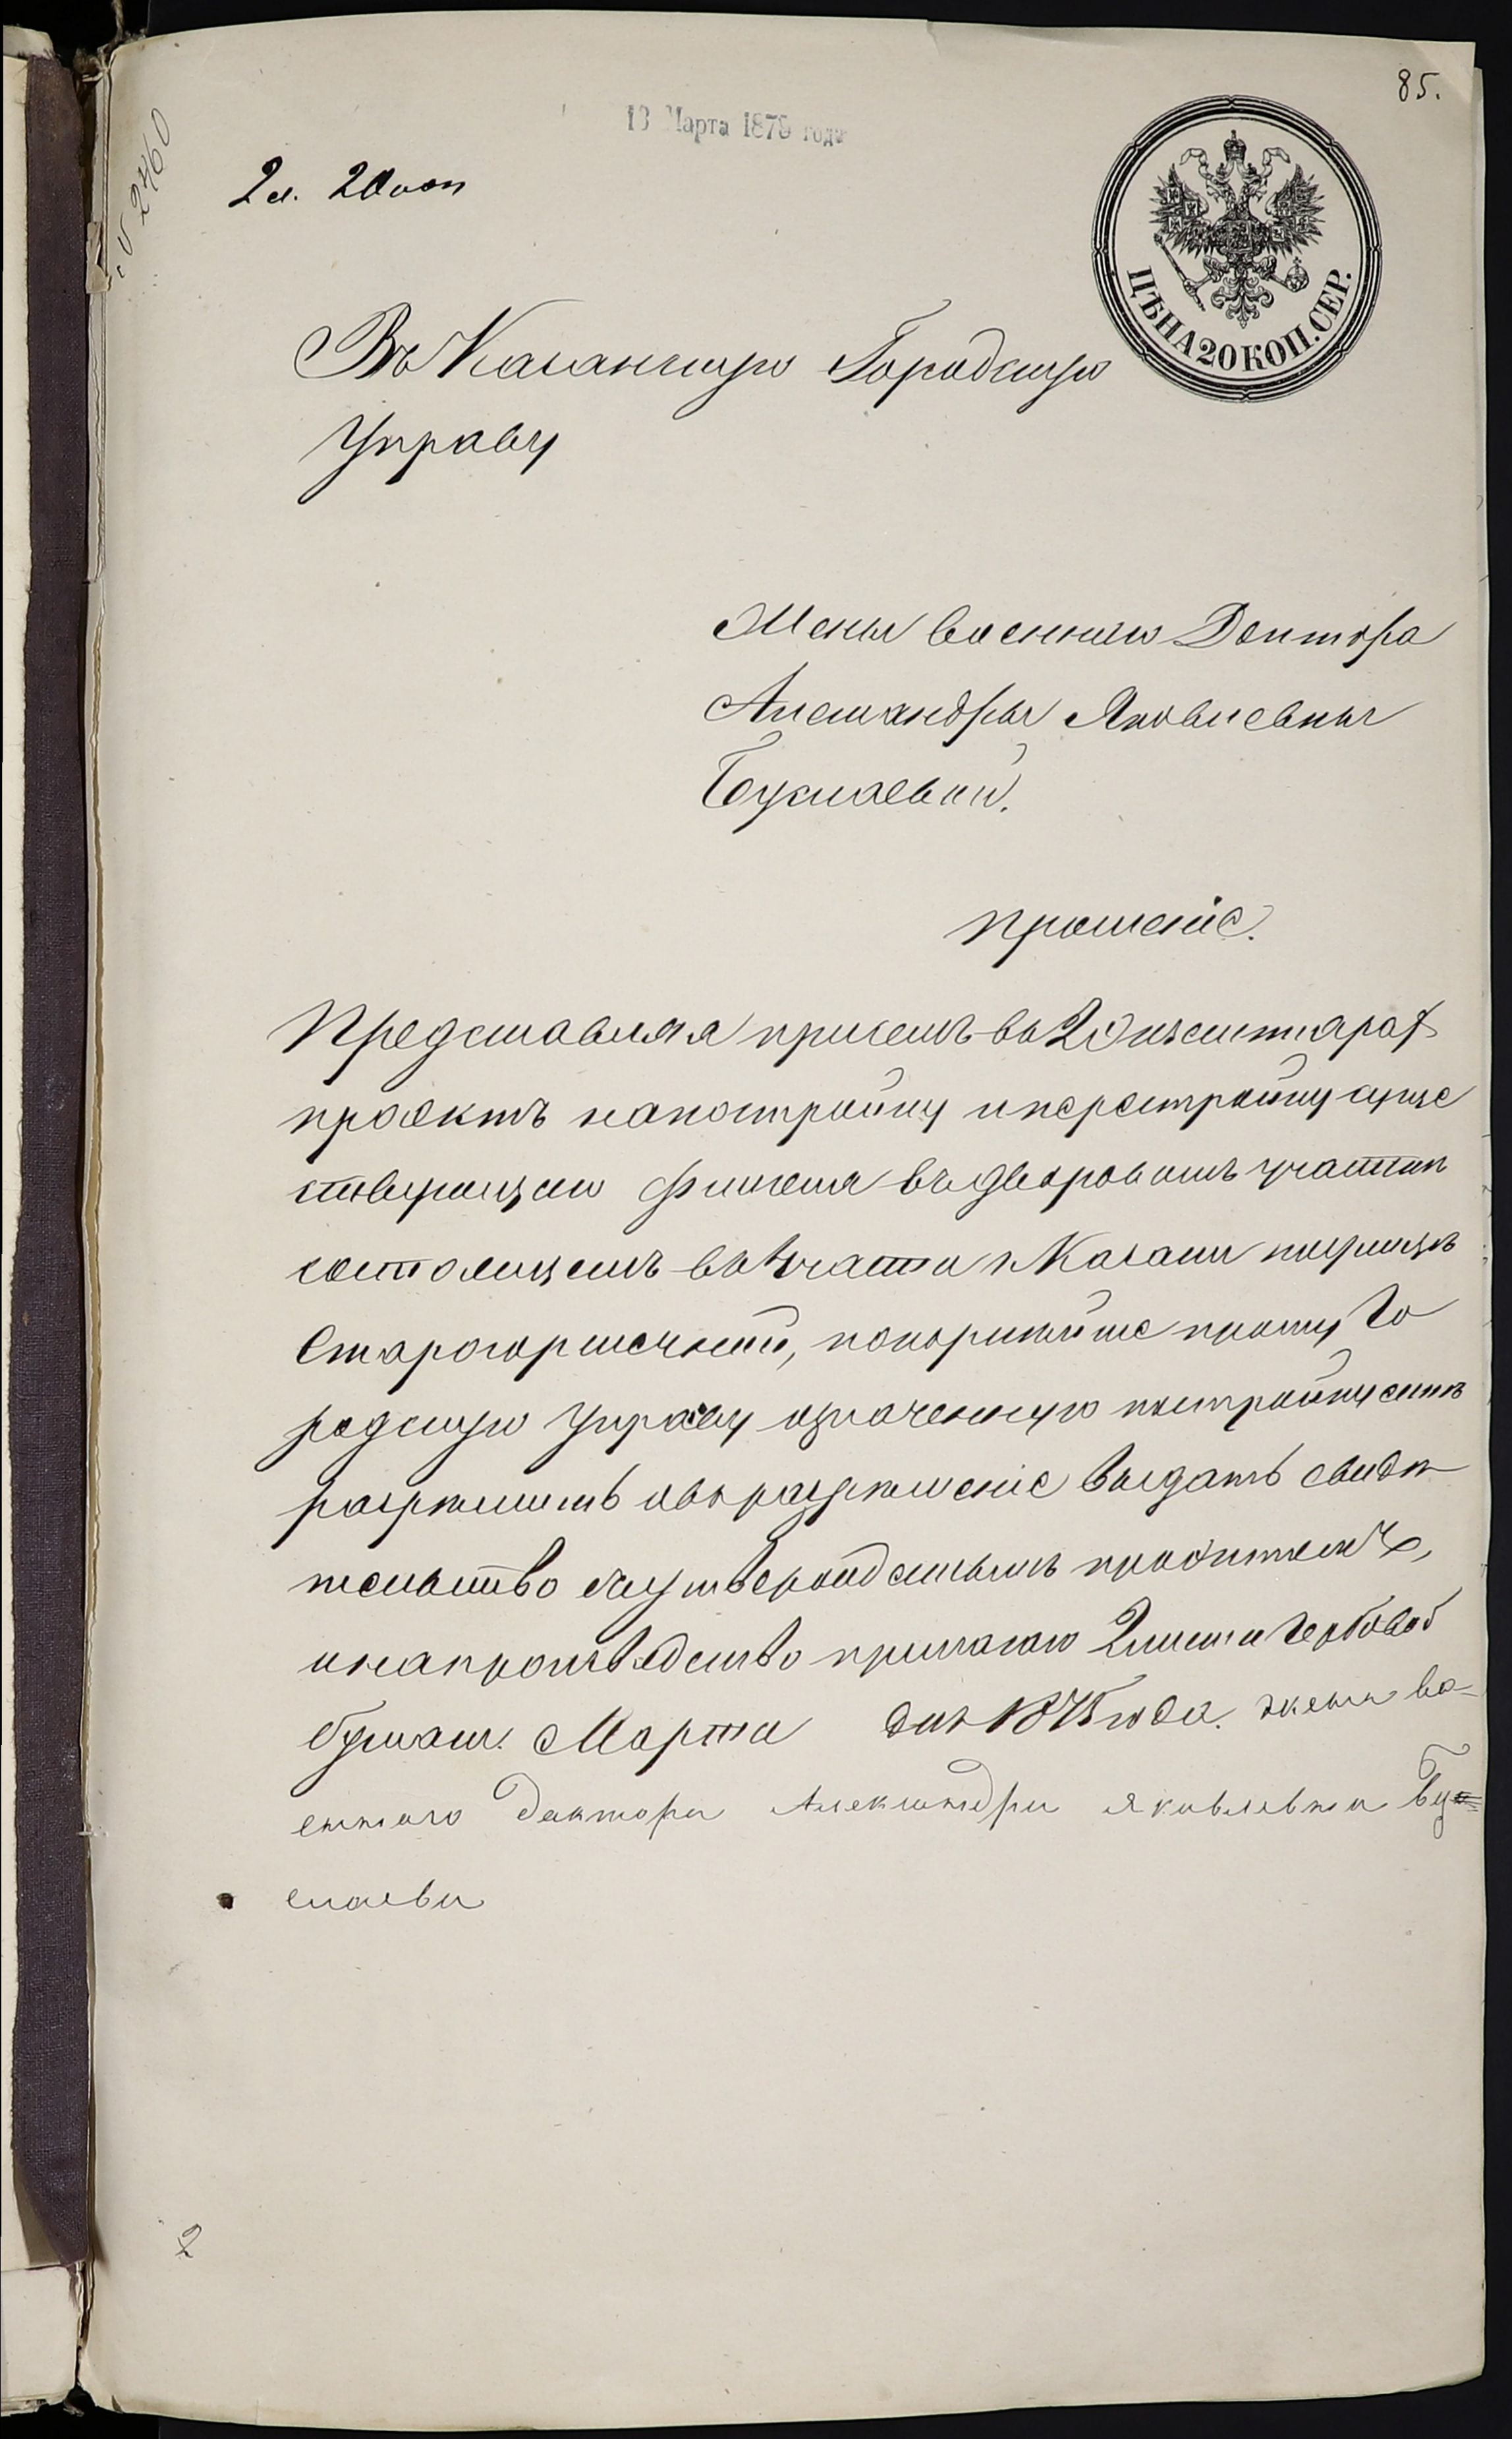 85.
13 Марта 1879 года
№ 2460
2 л. 20 коп
ЦѢНА 20 КОП. СЕР.
Въ Казанскую Городскую
Управу
Жены военнаго Доктора
Александры Яковлевны
Буслаевой.
прошеніе.
Представляя присемъ въ 2 экземплярах
проэктъ на постройку и перестройку суще
ствующаго флигеля въ дворовомъ участкѣ
состоящемъ во части г. Казани по улицѣ
Старогоршечной, покорнѣйше прошу Го
родскую Управу означенную постройку мнѣ
разрѣшить и въ разрѣшеніе выдать свидѣ
тельство съ утвержденнымъ проэктомъ,
и на производство прилагаю 2 листа гербовой
бумаги. Марта дня 187 года. жена во-
еннаго доктора Александра Яковлевна Бу
слаева
2